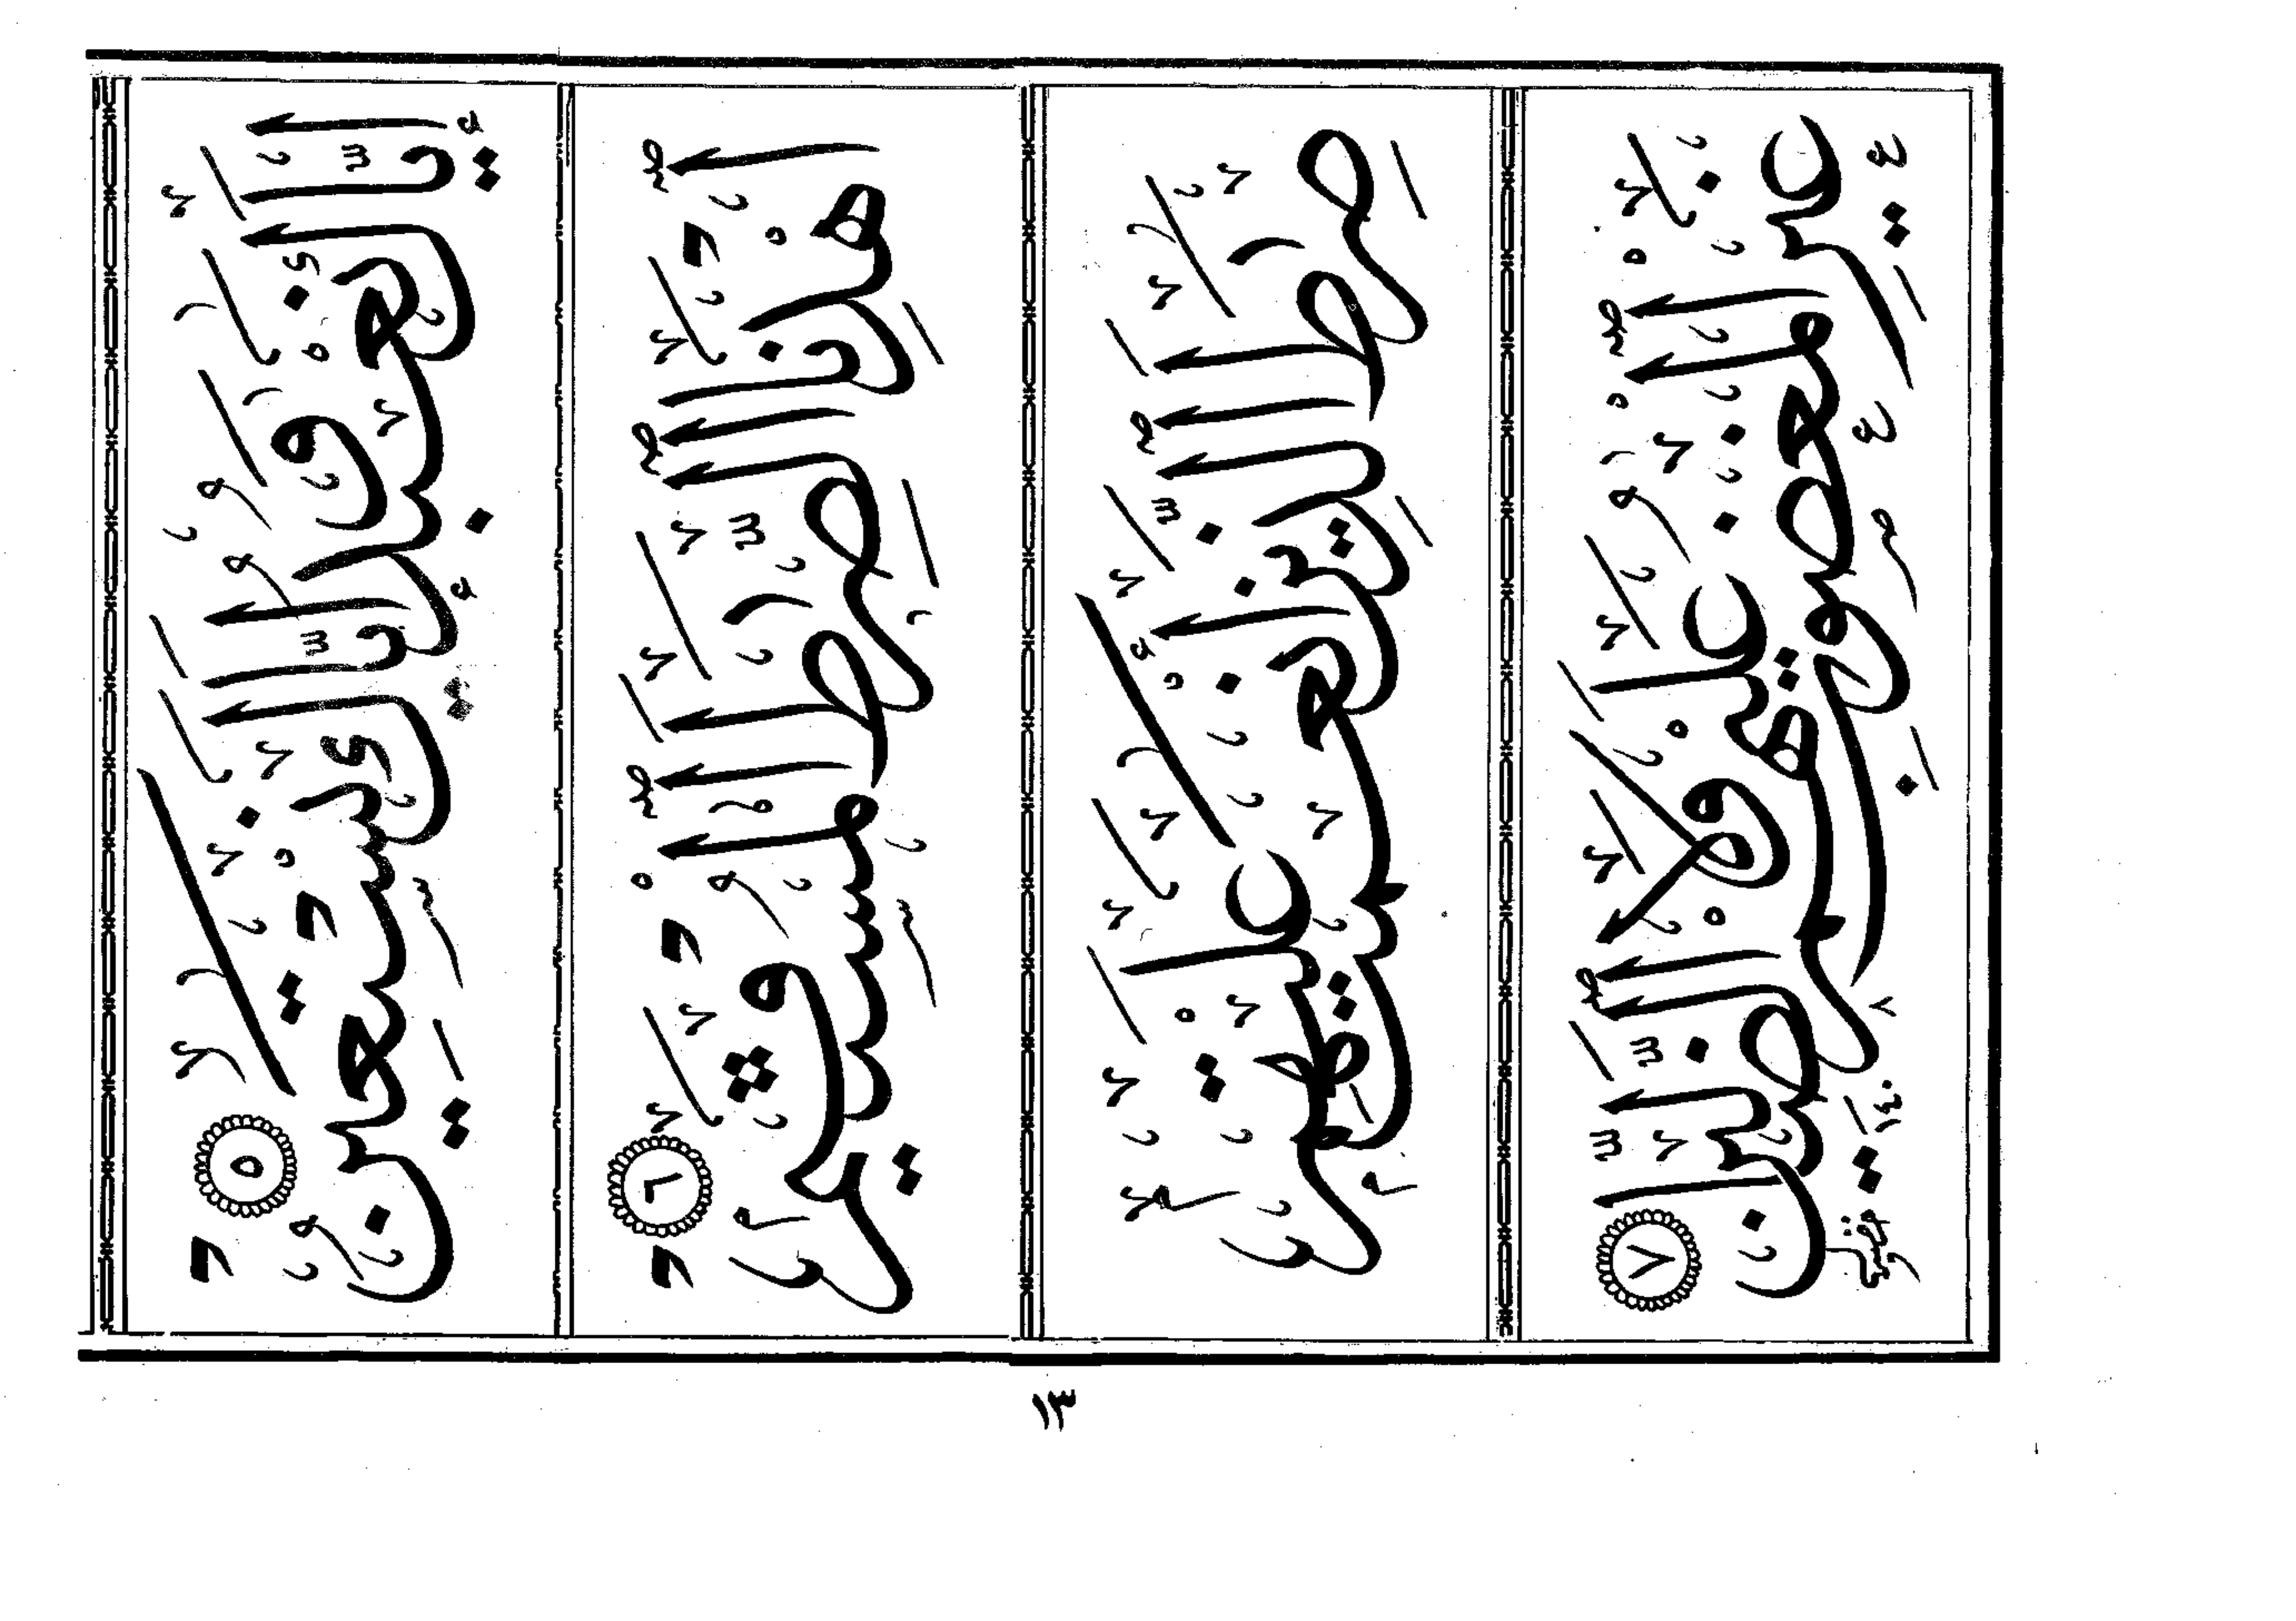 إِيَّاكَ نَعْبُدُ وَإِيَّاكَ نَسْتَعِينُ ٥
اهْدِنَا الصِّرَاطَ الْمُسْتَقِيمَ ٦
صِرَاطَ الَّذِينَ أَنْعَمْتَ عَلَيْهِمْ
غَيْرِ الْمَغْضُوبِ عَلَيْهِمْ وَلَا الضَّالِّينَ ٧
١٣